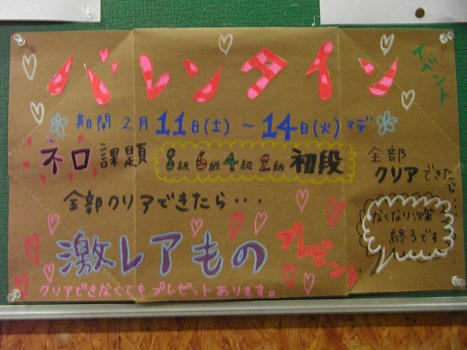 バレンタイン
イベント
期間 2月11日(土)～14日(火)マデ
ネロ課題 8級 6級 4級 2級 初段
全部クリアできたら・・・
激レアもの
プレゼント
クリアできなくてもプレゼントあります。
全部
クリアできたら、
なくなり次第
終了です